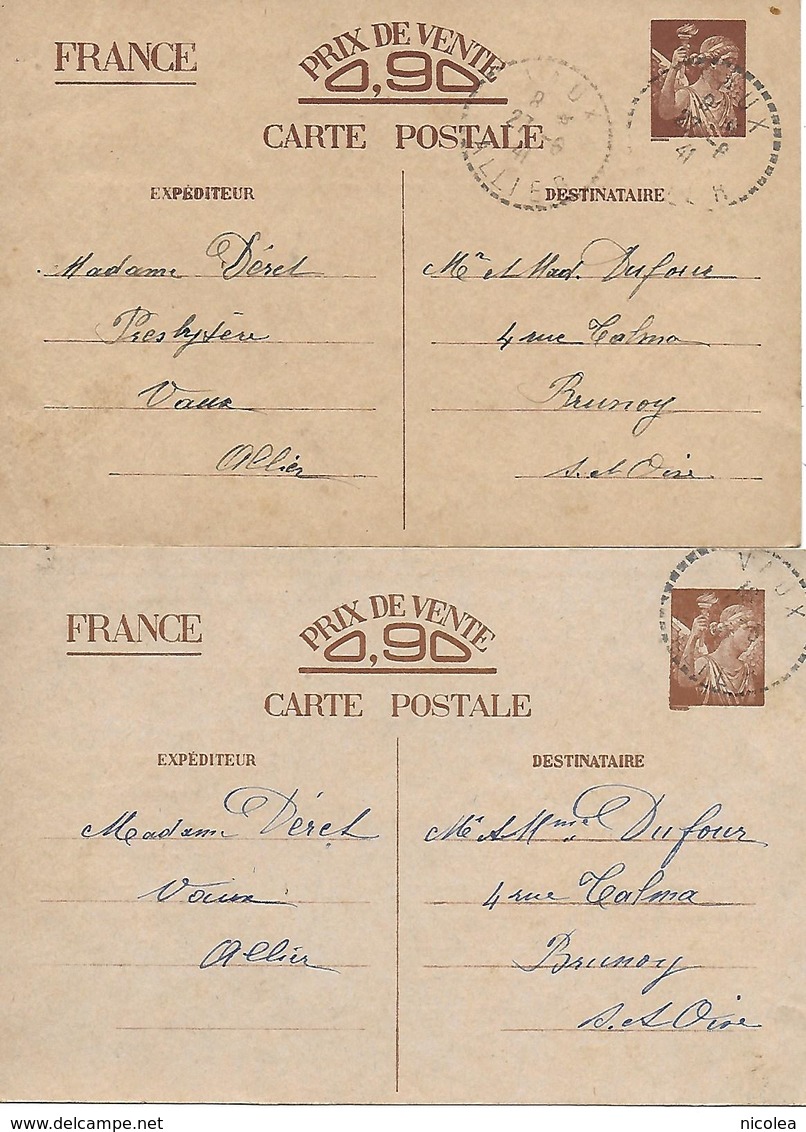 FRANCE
PRIX DE VENTE
0,90
CARTE POSTALE
EXPÉDITEUR
DESTINATAIRE
VAUX
27 -6
41
ALLIER
Madame Déret
Presbytère
Vaux
Allier
Mr et Mad. Dufour
4 rue Talma
Brunoy
S. et Oise
FRANCE
PRIX DE VENTE
0,90
CARTE POSTALE
VAUX
EXPÉDITEUR
DESTINATAIRE
Madame Déret
Vaux
Allier
Mr et Mme Dufour
4 rue Talma
Brunoy
S. et Oise
delcampe.net
nicolea